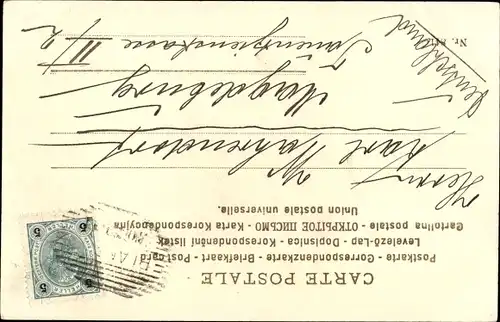 CARTE POSTALE
Postkarte - Correspondenzkarte - Briefkaart - Postcard
Levelező-Lap - Dopisnica - Korespondenční lístek
Cartolina postale - ОТКРЫТОЕ ПИСЬМО - Karta Korespondencyjna
Union postale universelle.
5 5
Herrn
Karl
Magdeburg
II/2
Deutschland
Nr.